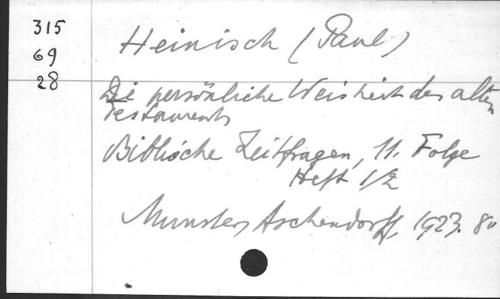 315
69
28
Heinisch (Paul)
Die persönliche Weisheit des alten
Testaments
Biblische Zeitfragen, 11. Folge
Heft 1/2
Munster, Aschendorff, 1923. 8o